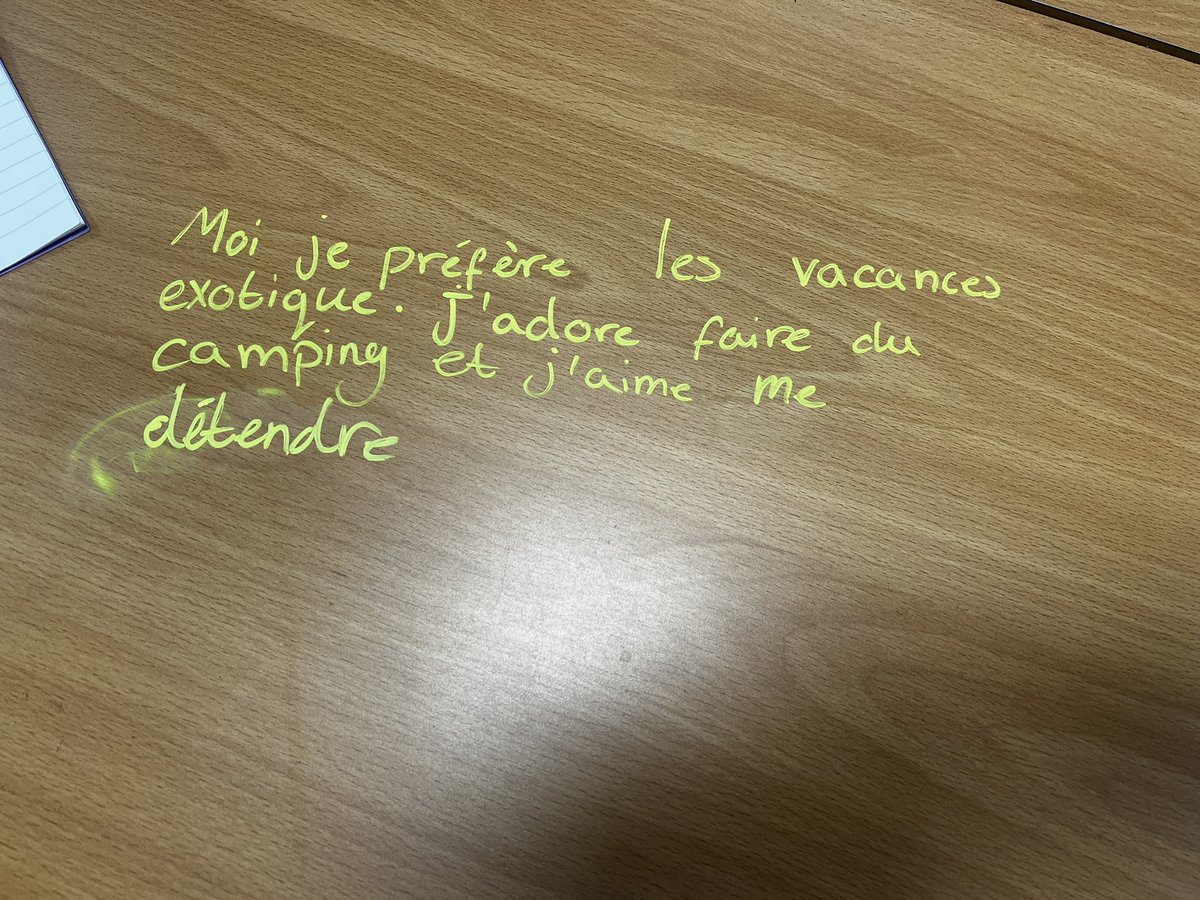 Moi je préfère les vacances
exotique. J'adore faire du
camping et j'aime me
détendre